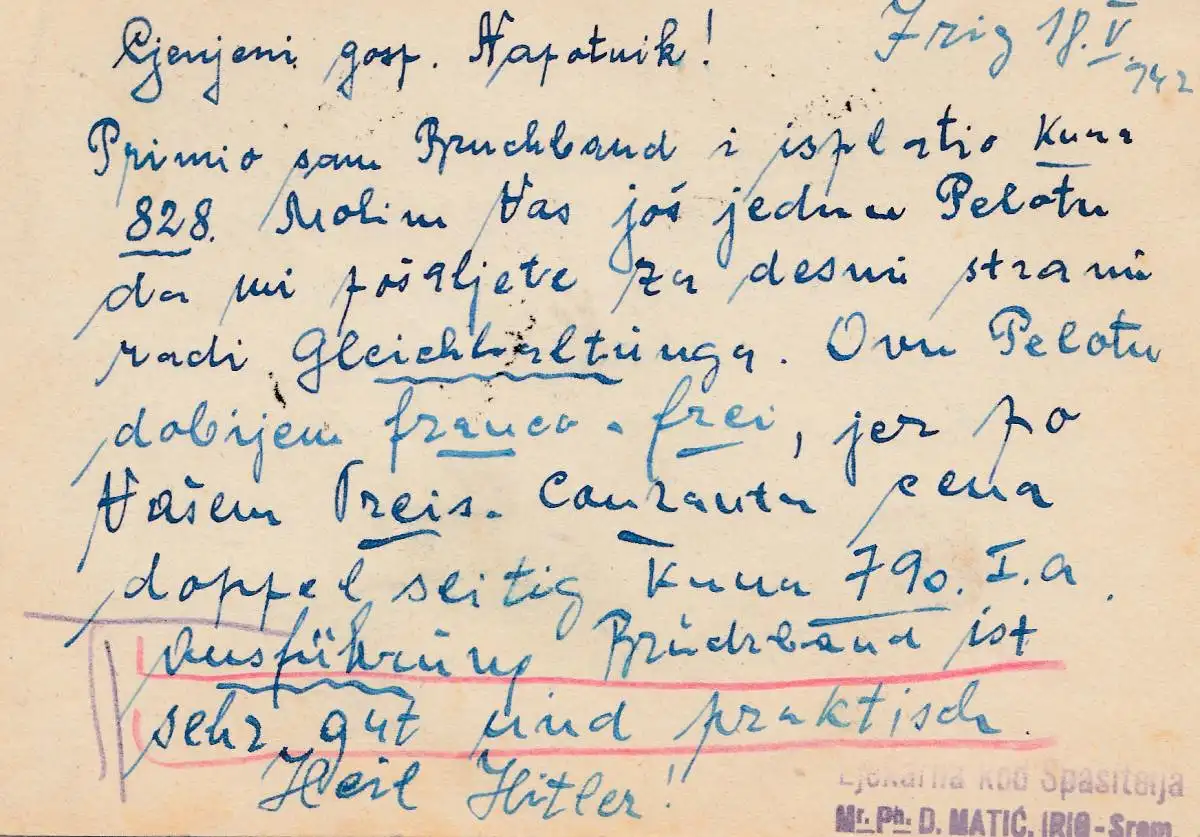 Cjenjeni gosp. Napotnik!
Irig 18.V.
942
Primio sam Bruchband i isplatio Kuna
828. Molim Vas još jednu Pelotu
da mi pošaljete za desnu stranu
radi Gleichhaltunga. Ovu Pelotu
dobijem franco - frei, jer po
Vašem Preis-Couranta cena
doppelseitig Kuna 790. I.a
Ausführung Brüchband ist
sehr gut und praktisch.
Heil Hitler!
Ljekarna kod Spasitelja
Mr. Ph. D. MATIĆ, IRIG-Srem